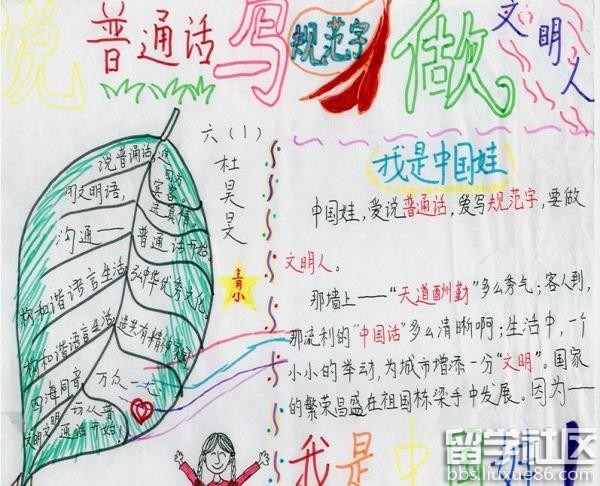 说普通话写规范字做文明人
六(1)
杜昊旻
说普通话,迎
四方宾客。
用文明语,
送真情。
沟通——
普通话开始
构和谐语言生活
弘中华优秀文化
构和谐语言生活
造共有精神家园
四海同音
万众一心
文明从普
通话开始!
青小
我是中国娃
中国娃,爱说普通话,爱写规范字,要做
文明人。
那墙上——“天道酬勤”多么秀气;客人到,
那流利的“中国话”多么清晰啊;生活中,一个
小小的举动,为城市增添一分“文明”。国家
的繁荣昌盛在祖国栋梁手中发展。因为——
我是中国
留学社区
bbs.liuxue86.com